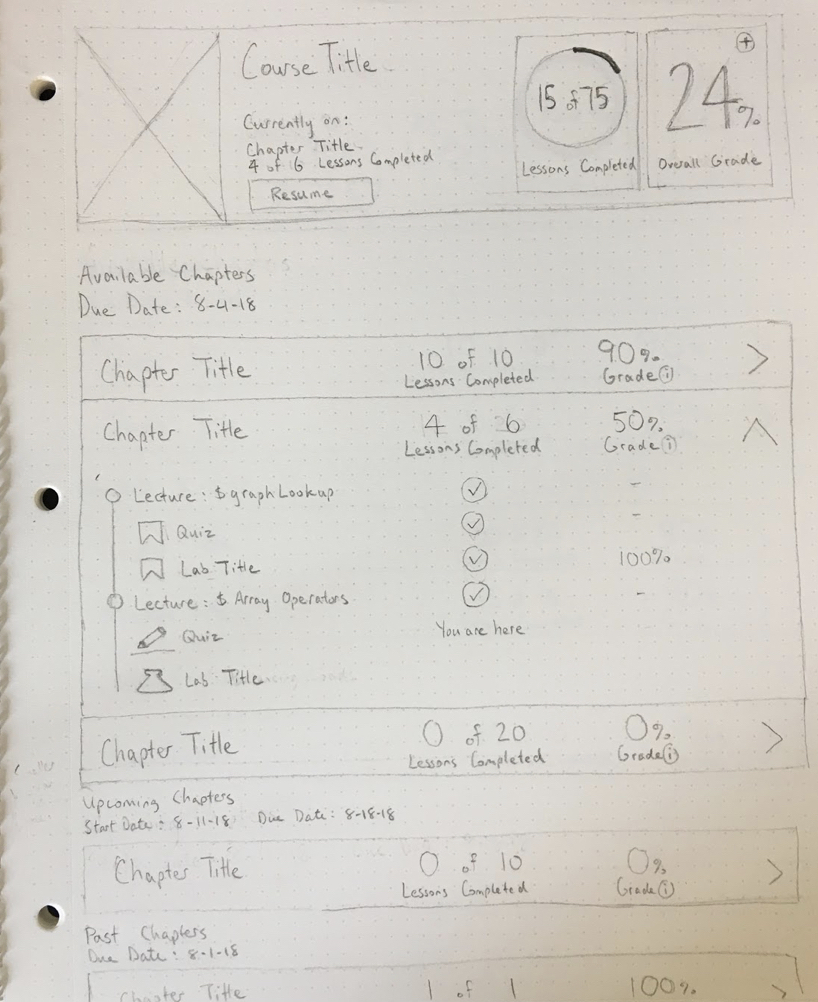 Course Title
Currently on:
Chapter Title
4 of 6 Lessons Completed
Resume
15 of 75
Lessons Completed
24%
Overall Grade
Available Chapters
Due Date: 8-4-18
Chapter Title 10 of 10 90%
Lessons Completed Grade i
Chapter Title 4 of 6 50%
Lessons Completed Grade i
Lecture: $graphLookup -
Quiz -
Lab Title 100%
Lecture: $ Array Operators -
Quiz You are here
Lab Title
Chapter Title 0 of 20 0%
Lessons Completed Grade i
Upcoming Chapters
Start Date: 8-11-18 Due Date: 8-18-18
Chapter Title 0 of 10 0%
Lessons Completed Grade i
Past Chapters
Due Date: 8-1-18
Chapter Title 1 of 1 100%